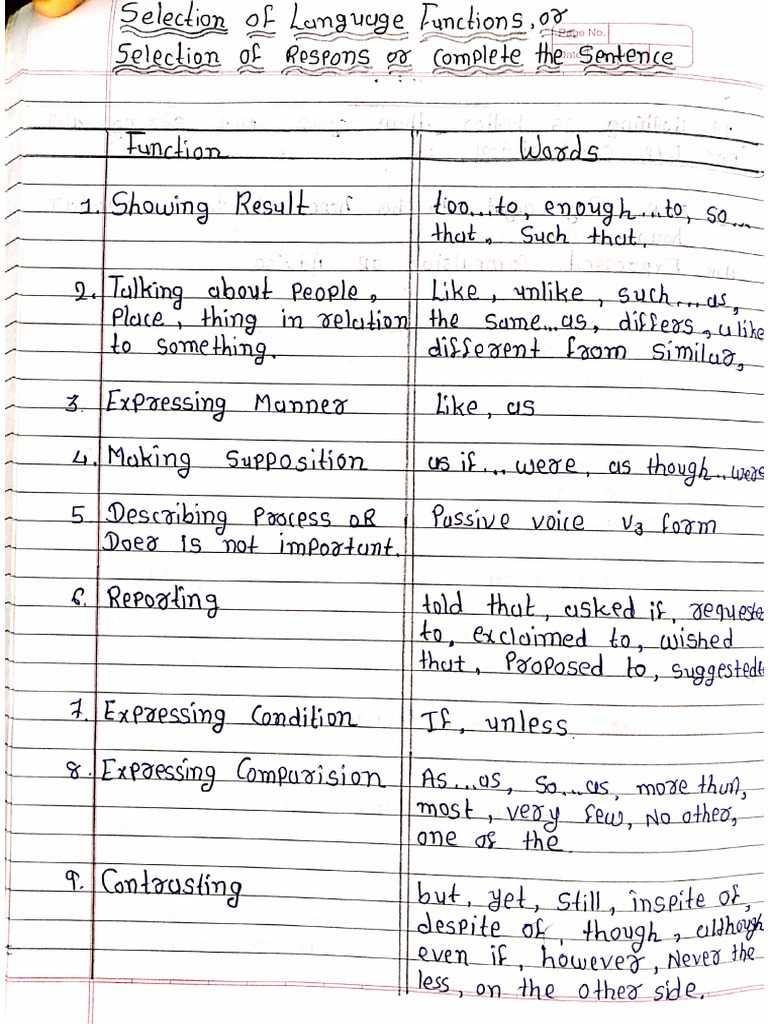 Selection of Language Functions, or
Page No.
Date
Selection of Respons or Complete the Sentence
Function Words
1. Showing Result too...to, enough...to, so...
that, Such that,
2. Talking about people, Like, unlike, such...as,
Place, thing in relation the same...as, differs, alike
to something. different from similar,
3. Expressing Manner Like, as
4. Making Supposition as if... were, as though..were
5. Describing Process OR Passive voice V3 form
Doer is not important.
6. Reporting told that, asked if, requeste
to, exclaimed to, wished
that, Proposed to, suggestedt
7. Expressing Condition If, unless
8. Expressing Comparision As...as, So...as, more than,
most, very few, No other,
one of the
9. Contrasting but, yet, Still, inspite of,
despite of, though, although
even if, however, Never the
less, on the other side.